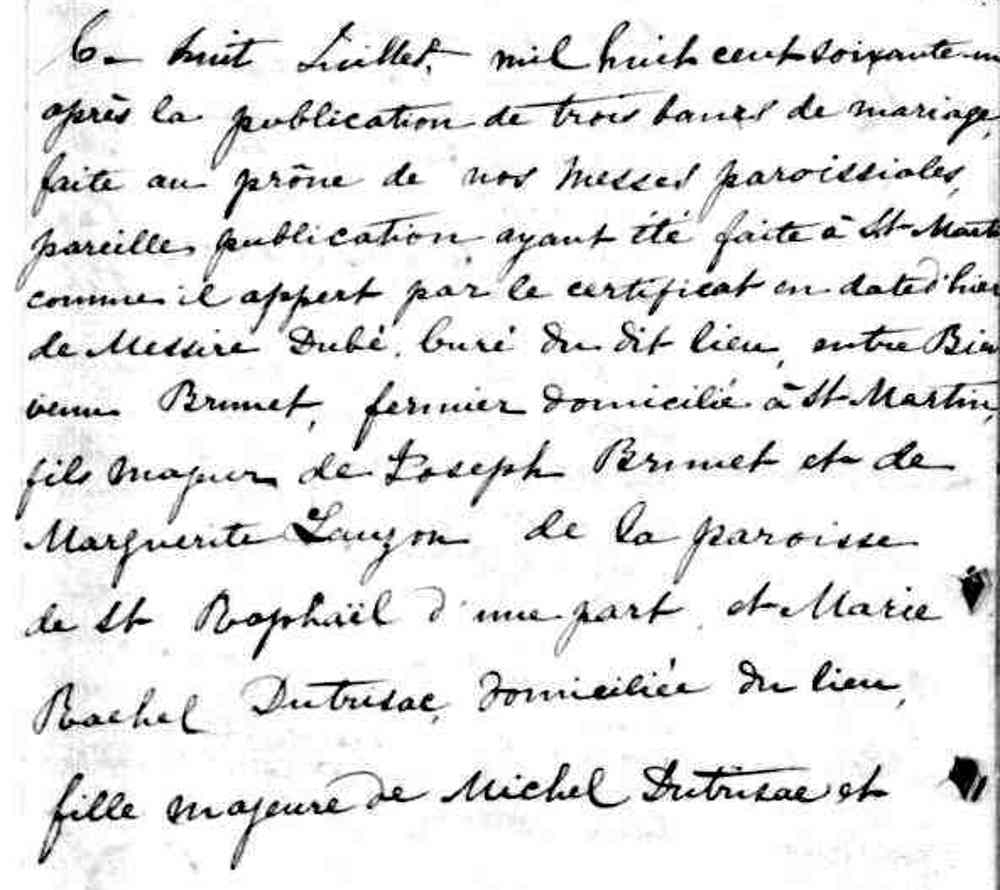 Ce huit Juillet, mil huit cent soixante-un
après la publication de trois bancs de mariage,
faite au prône de nos Messes paroissiales,
pareille publication ayant été faite à St-Mart
comme il appert par le certificat en date d'hier
de Messire Dubé, Curé du dit lieu, entre Bien
venu Brunet, fermier domicilié à St-Martin,
fils majeur de Joseph Brunet et de
Marguerite Lauzon de la paroisse
de St Raphaël d'une part, et Marie
Rachel Dutrisac, domiciliée du lieu,
fille majeure de Michel Dutrisac et